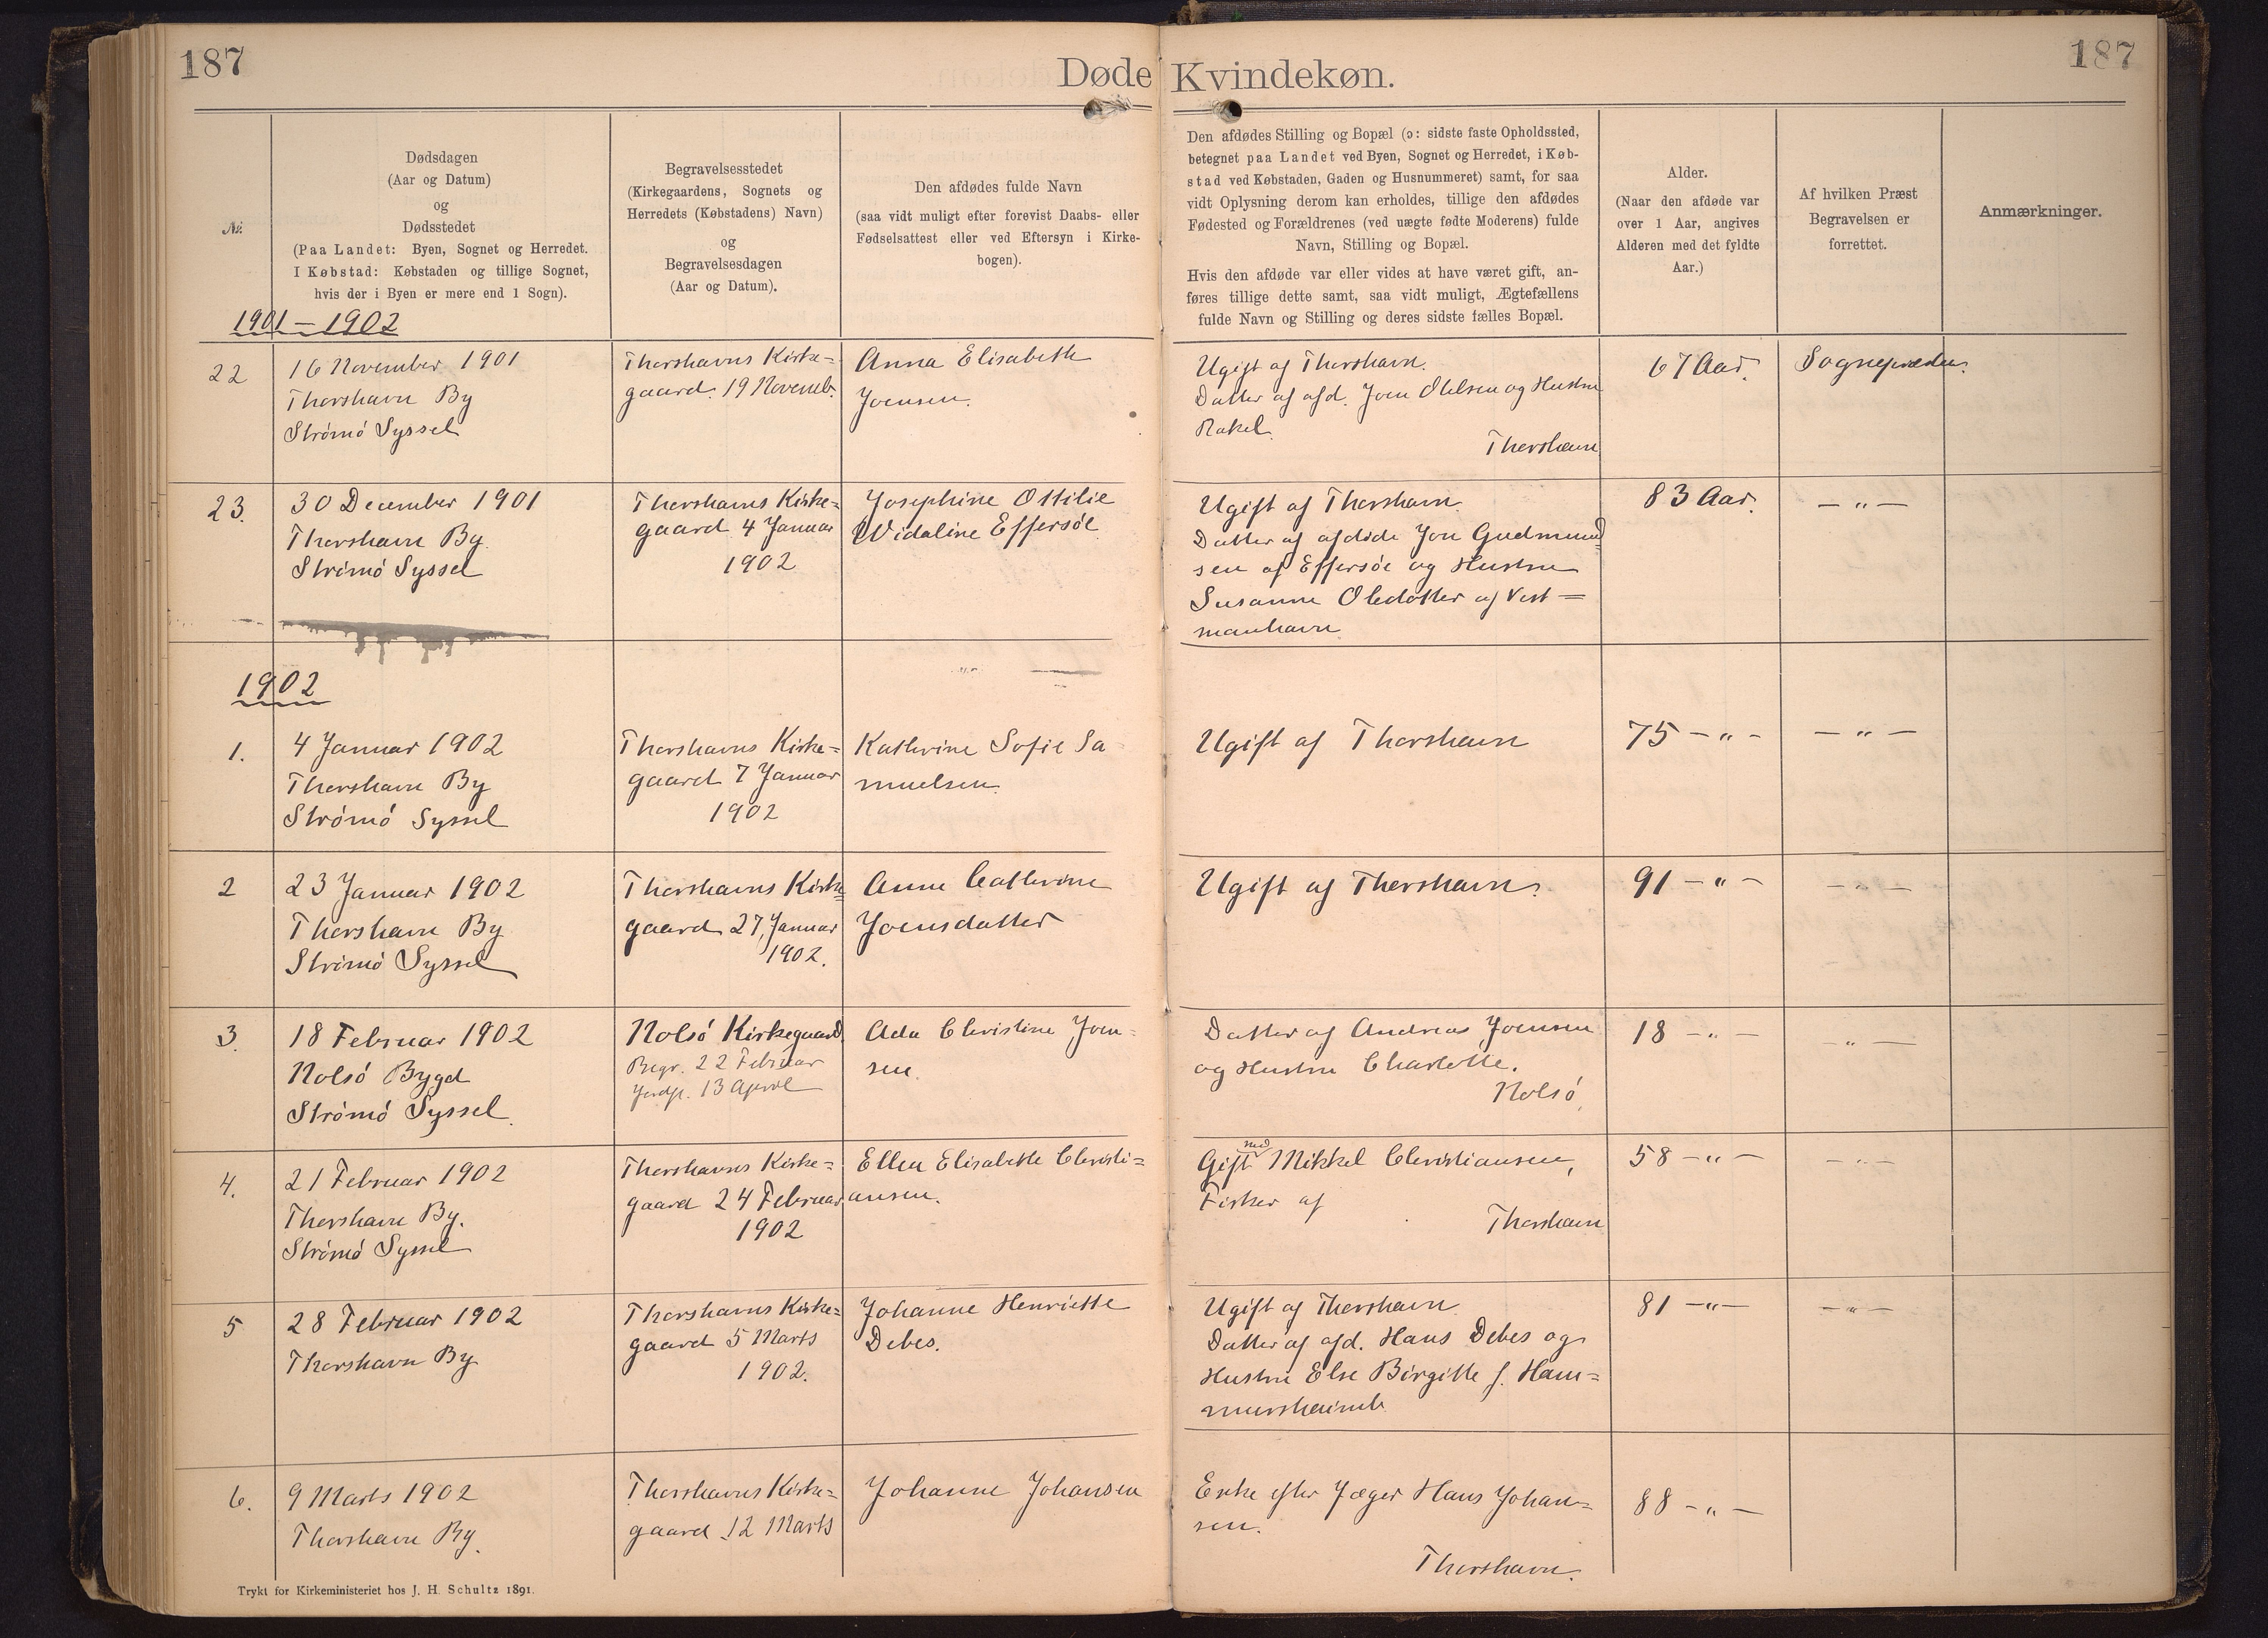 187
Døde Kvindekøn.
187
№.
Dødsdagen
(Aar og Datum)
og
Dødsstedet
(Paa Landet: Byen, Sognet og Herredet.
I Købstad: Købstaden og tillige Sognet,
hvis der i Byen er mere end 1 Sogn).
Begravelsesstedet
(Kirkegaardens, Sognets og
Herredets (Købstadens) Navn)
og
Begravelsesdagen
(Aar og Datum).
Den afdødes fulde Navn
(saa vidt muligt efter forevist Daabs- eller
Fødselsattest eller ved Eftersyn i Kirke-
bogen).
Den afdødes Stilling og Bopæl (ɔ: sidste faste Opholdssted,
betegnet paa Landet ved Byen, Sognet og Herredet, i Køb-
stad ved Købstaden, Gaden og Husnummeret) samt, for saa
vidt Oplysning derom kan erholdes, tillige den afdødes
Fødested og Forældrenes (ved uægte fødte Moderens) fulde
Navn, Stilling og Bopæl.
Hvis den afdøde var eller vides at have været gift, an-
føres tillige dette samt, saa vidt muligt, Ægtefællens
fulde Navn og Stilling og deres sidste fælles Bopæl.
Alder.
(Naar den afdøde var
over 1 Aar, angives
Alderen med det fyldte
Aar.)
Af hvilken Præst
Begravelsen er
forrettet.
Anmærkninger.
1901-1902
22
16 November 1901
Thorshavn By
Strómó Syssel
Thorshavns Kirke=
gaard. 19 Novemb.
Anna Elisabeth
Joensen.
Ugift af Thorshavn.
Datter af afd. Joen Olelsen og Hustru
Rakel.
Thorshavn
67 Aar.
Sognepræsten.
23.
30 December 1901
Thorshavn By.
Strómó Syssel
Thorshavns Kirke=
gaard 4 Januar
1902
Josephine Ottilie
Widaline Effersöe
Ugift af Thorshavn.
Datter af afdöde Jon Gudmund=
sen af Effersöe og Hustru
Susanne Oledatter af Vest=
manhavn
83 Aar.
— " —
1902
1.
4 Januar 1902
Thorshavn By
Strómó Syssel
Thorshavns Kirke=
gaard 7 Januar
1902
Kathrine Sofie Sa-
muelsen.
Ugift af Thorshavn
75 — " —
— " —
2
23 Januar 1902
Thorshavn By
Strómó Syssel
Thorshavns Kirke=
gaard 27, Januar
1902.
Anne Cathrine
Joensdatter
Ugift af Thorshavn.
91 — " —
— " —
3.
18 Februar 1902
Nolsó Bygd
Strómó Syssel.
Nolsó Kirkegaard.
Begr. 22 Februar
Jordf. 13 April
Ada Christine Joen-
sen.
Datter af Andreas Joensen
og Hustru Charlotte.
Nolsó,
18 — " —
— " —
4.
21 Februar 1902
Thorshavn By.
Strómó Syssel
Thorshavns Kirke=
gaard 24 Februar
1902
Ellen Elisabeth Christi=
ansen.
Gift med Mikkel Christiansen,
Fisker af
Thorshavn
58 — " —
— " —
5
28 Februar 1902
Thorshavn By
Thorshavns Kirke=
gaard 5 Marts
1902.
Johanne Henriette
Debes.
Ugift af Thorshavn
Datter af afd. Hans Debes og
Hustru Else Birgitte f. Ham=
mershaimb
81 — " —
— " —
6.
9 Marts 1902
Thorshavn By.
Thorshavns Kirke=
gaard 12 Marts
Johanne Johansen
Enke efter Jæger Hans Johan=
sen.
Thorshavn.
88 — " —
Trykt for Kirkeministeriet hos J. H. Schultz 1891.